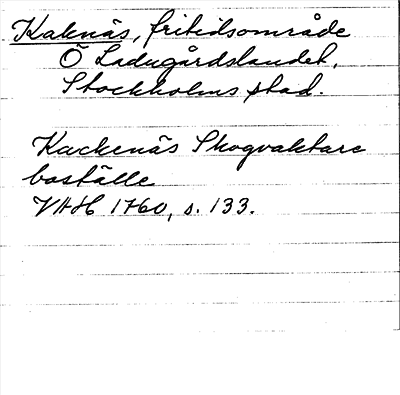 Kaknäs, fritidsområde
Ö Ladugårdslandet,
Stockholms stad.
Kackenäs Skogvaktare
boställe
VAH 1760, s. 133.